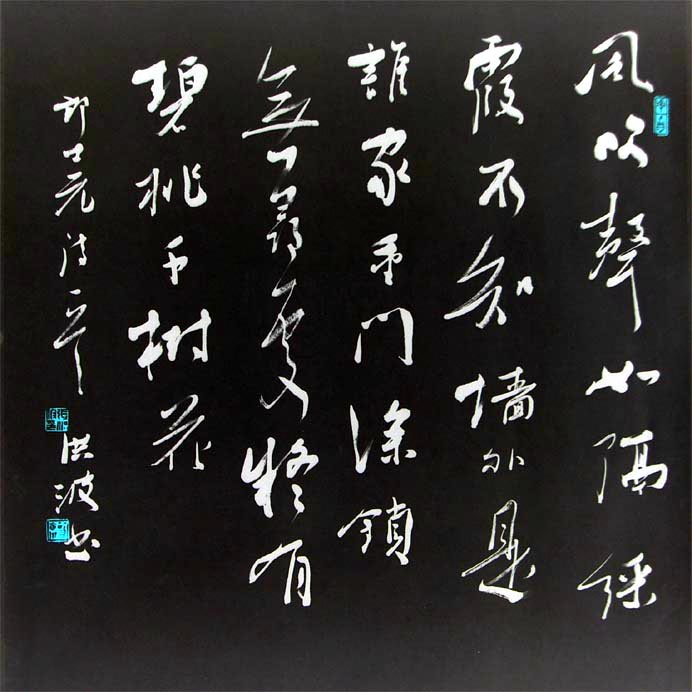 鳳吹聲如隔綵
霞不知墙外是
誰家重門深鎖
無尋處疑有
碧桃千樹花
郎士元詩一首 洪波书